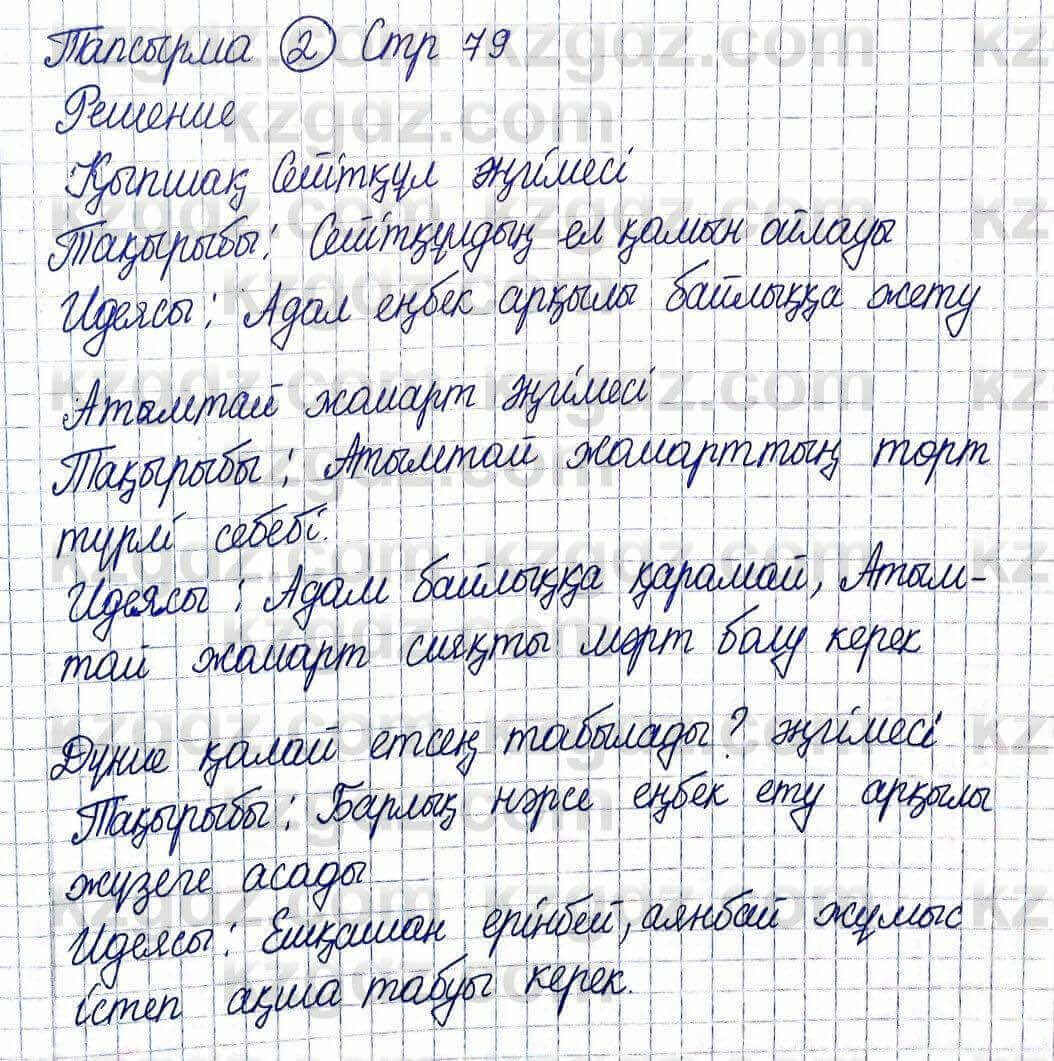 Тапсырма 2 Стр 79
Решение
Қыпшақ Сейітқұл әңгімесі
Тақырыбы: Сейітқұлдың ел қамын ойлауы
Идеясы: Адал еңбек арқылы байлыққа жету
Атымтай жомарт әңгімесі
Тақырыбы: Атымтай жомарттың төрт
түрлі себебі.
Идеясы: Адам байлыққа қарамай, Атым-
тай жомарт сияқты мәрт болу керек
Дүние қалай етсең табылады? әңгімесі
Тақырыбы: Барлық нәрсе еңбек ету арқылы
жүзеге асады
Идеясы: Ешқашан ерінбей, аянбай жұмыс
істеп ақша табуы керек.
kzgdz.com